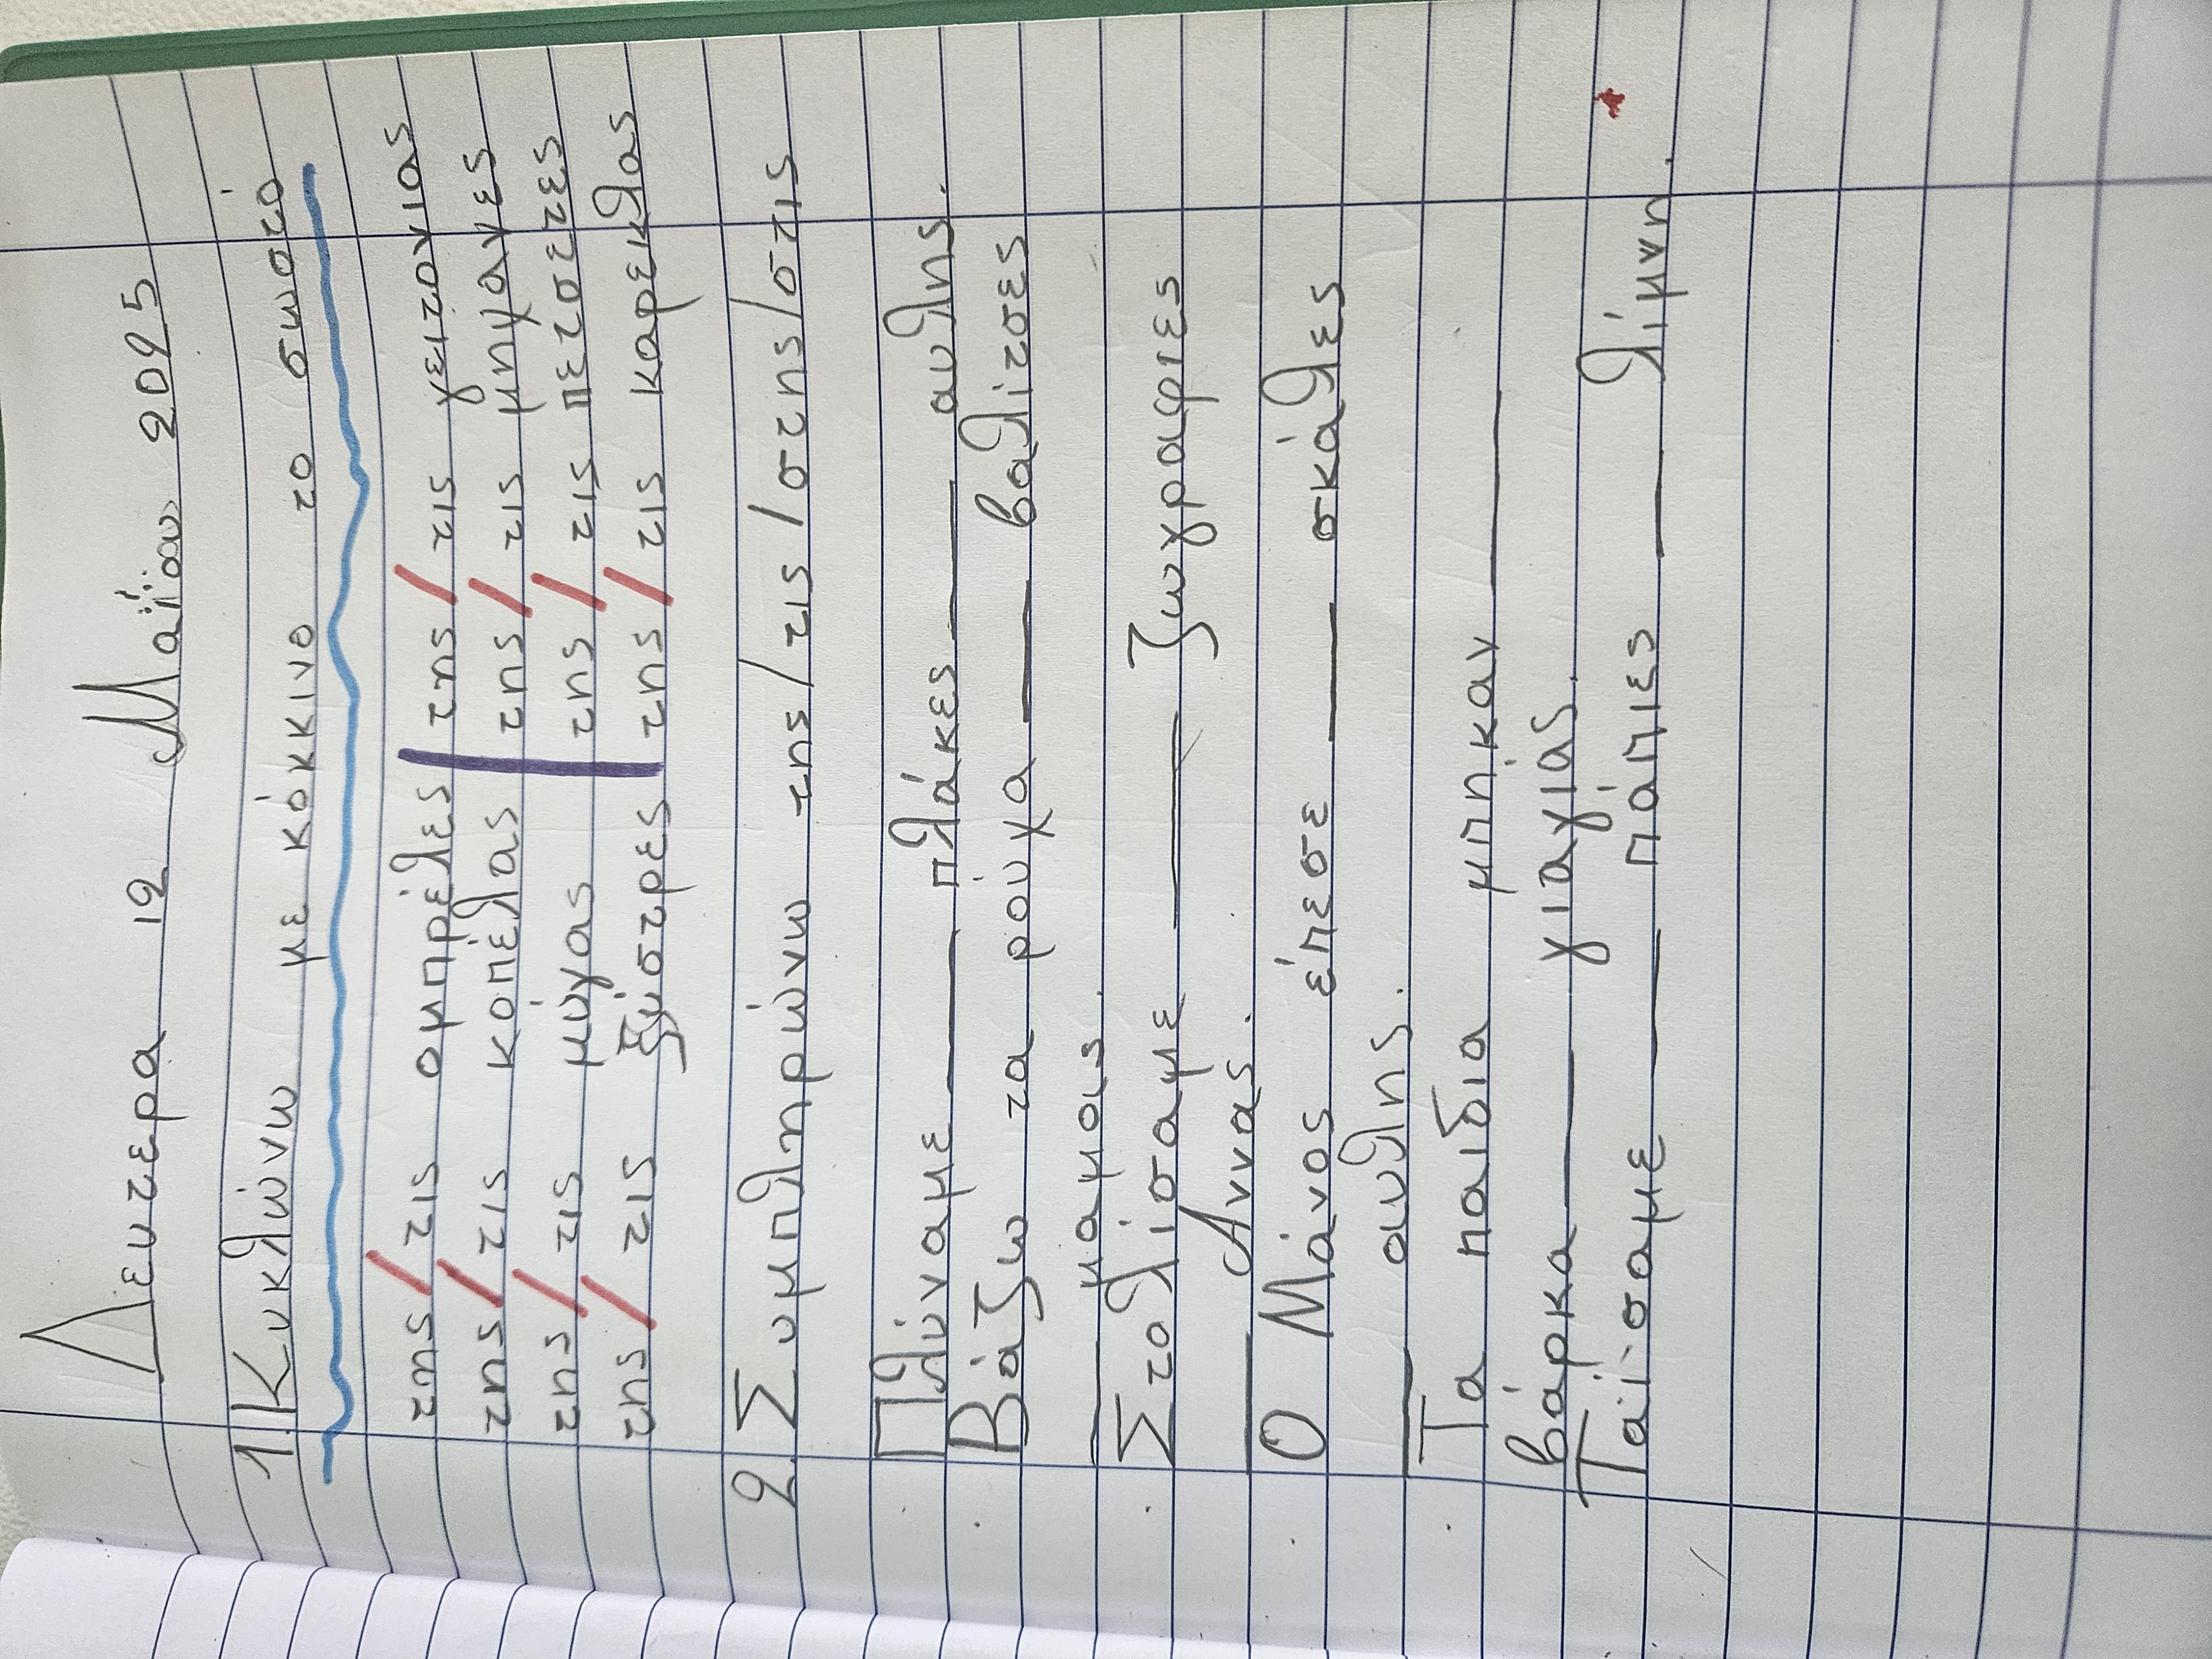 Δευτερα 12 Μαΐου 2025
1. Κυκλώνω με κόκκινο το σωστό
της / τις ομπρέλες της / τις γειτονιας
της / τις κοπέλας της / τις μηχανες
της / τις μύγας της / τις πετσετες
της / τις ξύστρες της / τις καρεκλας
2. Συμπληρώνω της/τις/στης/στις
Πλύναμε ___ πλάκες ___ αυλης.
Βάζω τα ρούχα ___ βαλίτσες
___ μαμας.
Στολίσαμε ___ ζωγραφιες
___ Αννας.
Ο Μάνος έπεσε ___ σκάλες
___ αυλης.
Τα παιδια μπήκαν ___
βάρκα ___ γιαγιάς.
Ταΐσαμε ___ πάπιες ___ λίμνη.